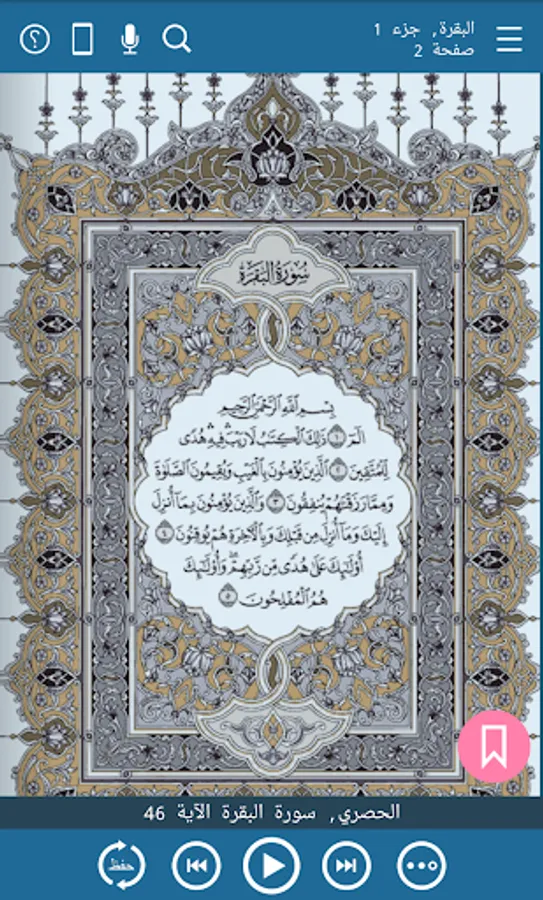 البقرة, جزء 1
صفحة 2
سُورَةُ البَقَرَةِ
بِسْمِ ٱللَّهِ ٱلرَّحْمَٰنِ ٱلرَّحِيمِ
الٓمٓ ١ ذَٰلِكَ ٱلْكِتَٰبُ لَا رَيْبَ ۛ فِيهِ ۛ هُدًى
لِّلْمُتَّقِينَ ٢ ٱلَّذِينَ يُؤْمِنُونَ بِٱلْغَيْبِ وَيُقِيمُونَ ٱلصَّلَوٰةَ
وَمِمَّا رَزَقْنَٰهُمْ يُنفِقُونَ ٣ وَٱلَّذِينَ يُؤْمِنُونَ بِمَآ أُنزِلَ
إِلَيْكَ وَمَآ أُنزِلَ مِن قَبْلِكَ وَبِٱلْءَاخِرَةِ هُمْ يُوقِنُونَ ٤
أُو۟لَٰٓئِكَ عَلَىٰ هُدًى مِّن رَّبِّهِمْ ۖ وَأُو۟لَٰٓئِكَ
هُمُ ٱلْمُفْلِحُونَ ٥
الحصري, سورة البقرة الآية 46
حفظ